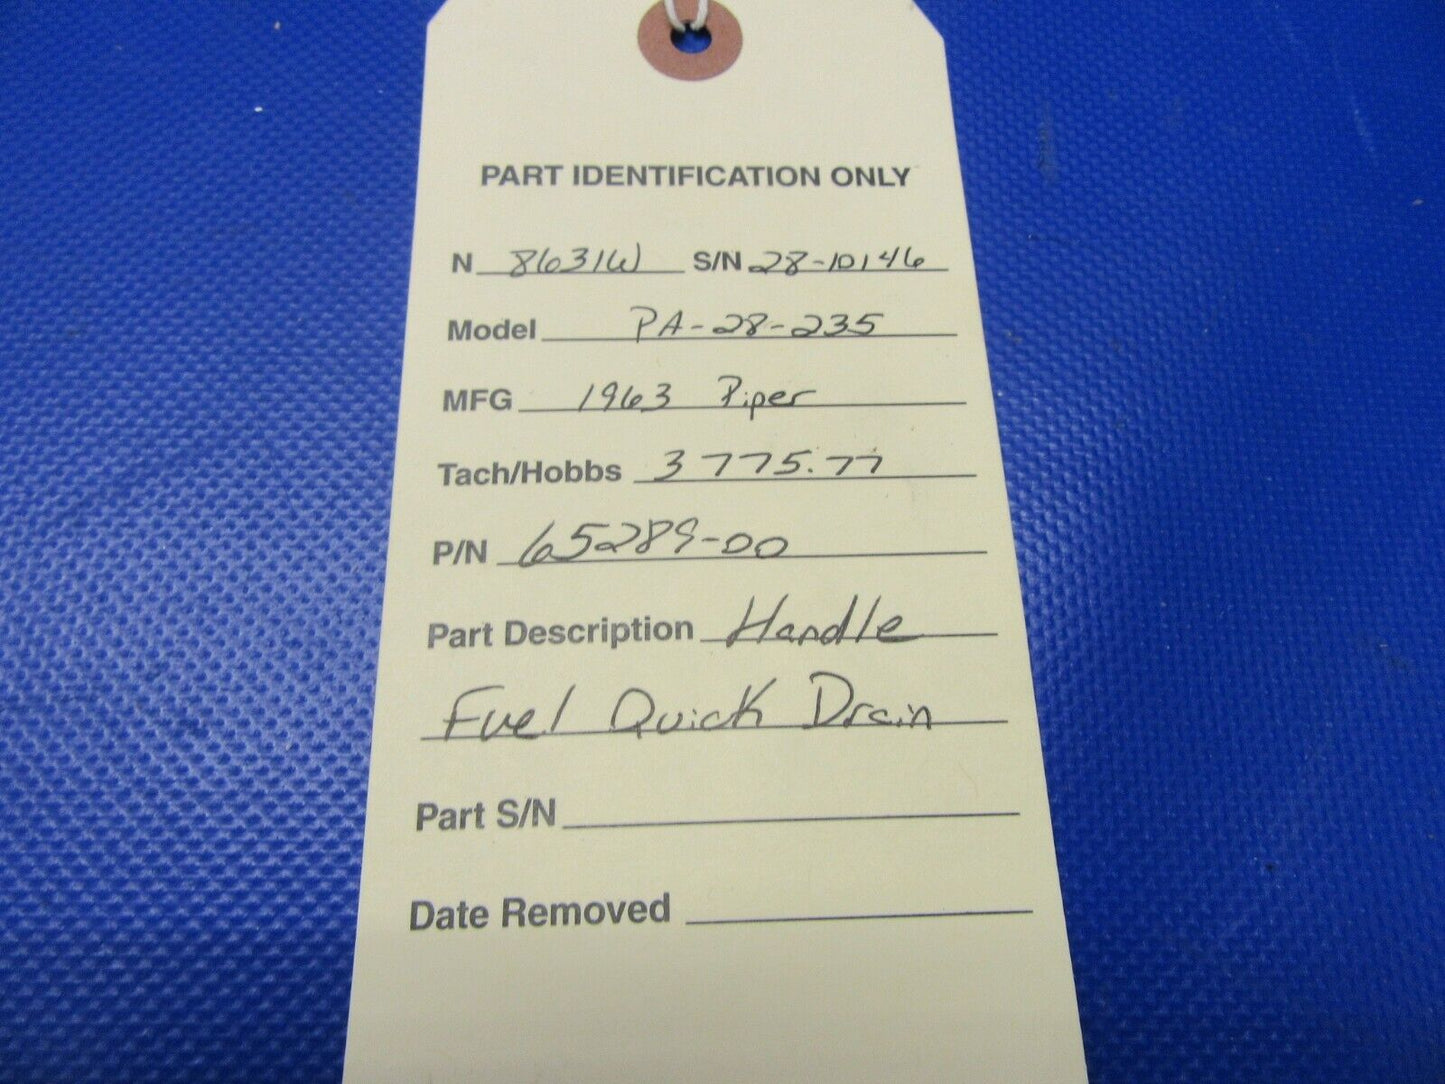 PART IDENTIFICATION ONLY
N 8631W S/N 28-10146
Model PA-28-235
MFG 1963 Piper
Tach/Hobbs 3775.77
P/N 65289-00
Part Description Handle
Fuel Quick Drain
Part S/N
Date Removed